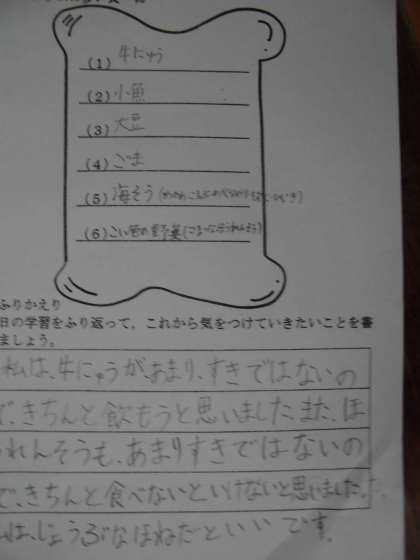 (1) 牛にゅう
(2) 小魚
(3) 大豆
(4) ごま
(5) 海そう(わかめ
(6) こい色の野菜(こまつなほうれんそう)
ふりかえり
日の学習をふり返って，これから気をつけていきたいことを書
ましょう。
私は、牛にゅうが、あまり、すきではないの
で、きちんと飲もうと思いました。また、ほ
れんそうも、あまりすきではないの
で、きちんと食べないといけないと思いました。
は、じょうぶなほねだといいです。